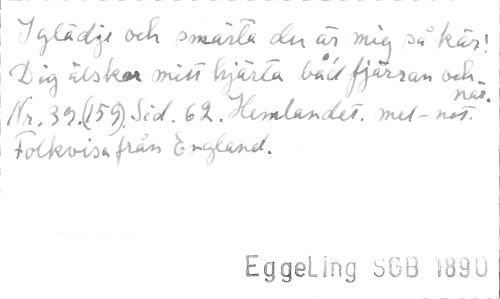 I glädje och smärta du är mig så kär!
Dig älskar mitt hjärta båd fjärran och
när.
Nr. 39. (159). Sid. 62. Hemlandet. met-not.
Folkvisa från England.
EggeLing SGB 1890